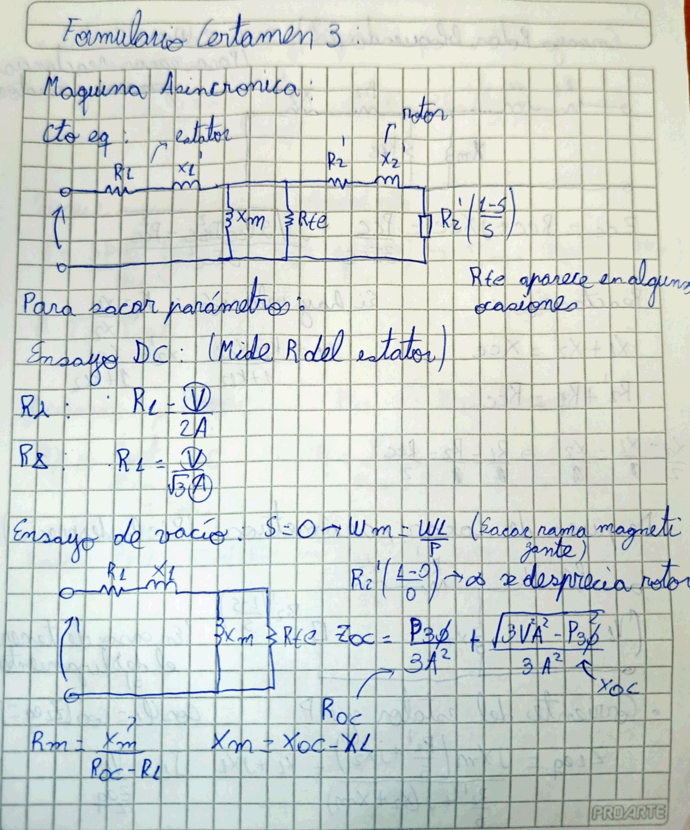 Formulario Certamen 3:
Maquina Asincronica:
Cto eq: estator rotor
R1 X1' R2' X2'
Xm Rfe R2'(1-S/S)
Rfe aparece en algunas
ocasiones
Para sacar parámetros:
Ensayo DC: (Mide R del estator)
Rλ: R1 = V/2A
RΔ: R1 = V/√3A
Ensayo de vacío. S=0 → Wm = W1/P (sacar rama magneti
zante)
R1 X1 R2'(1-0/0) → ∞ se desprecia rotor
Xm Rfe Zoc = P3ϕ/3A² + √3V²A²-P3ϕ²/3A²
Roc Xoc
Rm = Xm²/Roc-R1 Xm = Xoc-X1
PROARTE